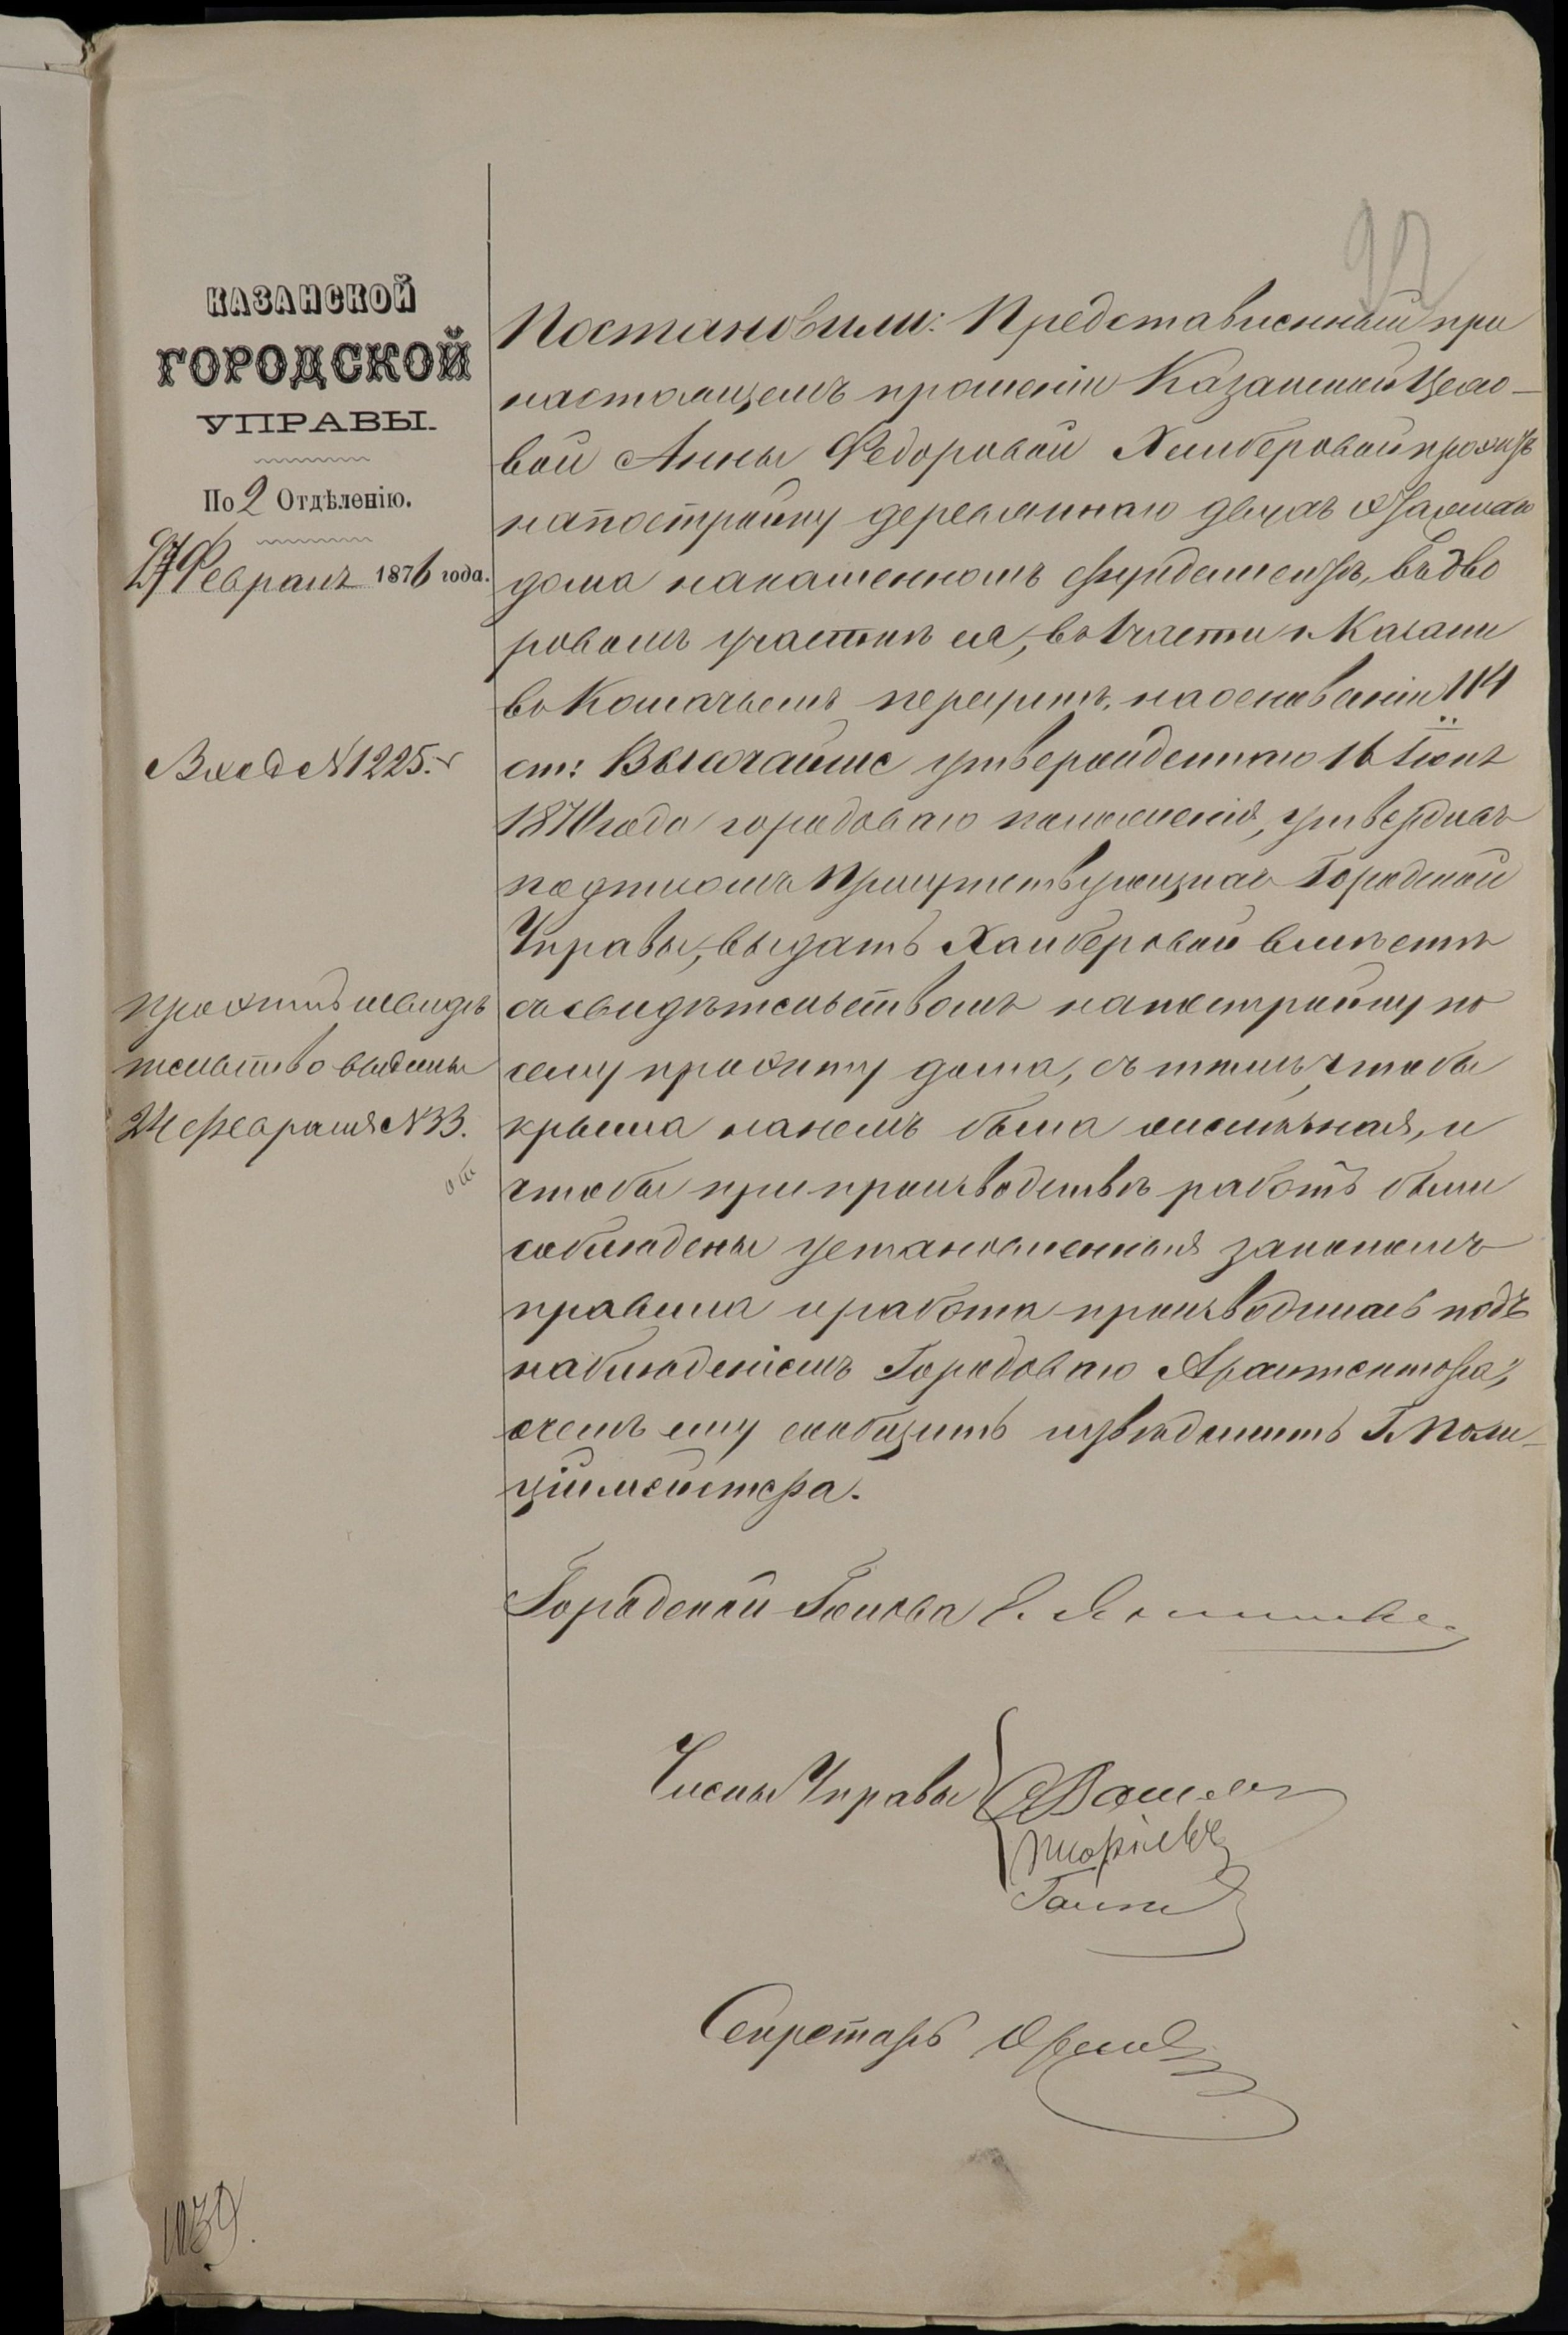 92
КАЗАНСКОЙ
ГОРОДСКОЙ
УПРАВЫ.
По 2 Отдѣленію.
Февраля 1876 года.
Вход №1225.
проэктъ и свидѣ
тельство выданы
Февраля №33.
Постановили: Представленный при
настоящемъ прошеніи Казанской Цехо-
вой Анны Федоровой проэктъ
на постройку деревяннаго двухъ этажнаго
дома на каменномъ фундаментѣ, въ дво
ровомъ участкѣ ея, въ 1 части г. Казани
въ переулкѣ, на основаніи 114
ст: Высочайше утвержденнаго 16 Іюня
1870 года городоваго положенія, утвердивъ
подписомъ Присутствующихъ Городской
Управы, выдать вмѣстѣ
съ свидѣтельствомъ на постройку по
сему проэкту дома, съ тѣмъ, чтобы
крыша на немъ была желѣзная, и
чтобы при производствѣ работъ были
соблюдены установленныя закономъ
правила и работа производилась подъ
наблюденіемъ Городоваго Архитектора,
о чемъ ему сообщить и увѣдомить Г. Поли-
ціймейстера.
Городской Голова
Члены Управы
Секретарь
1039.